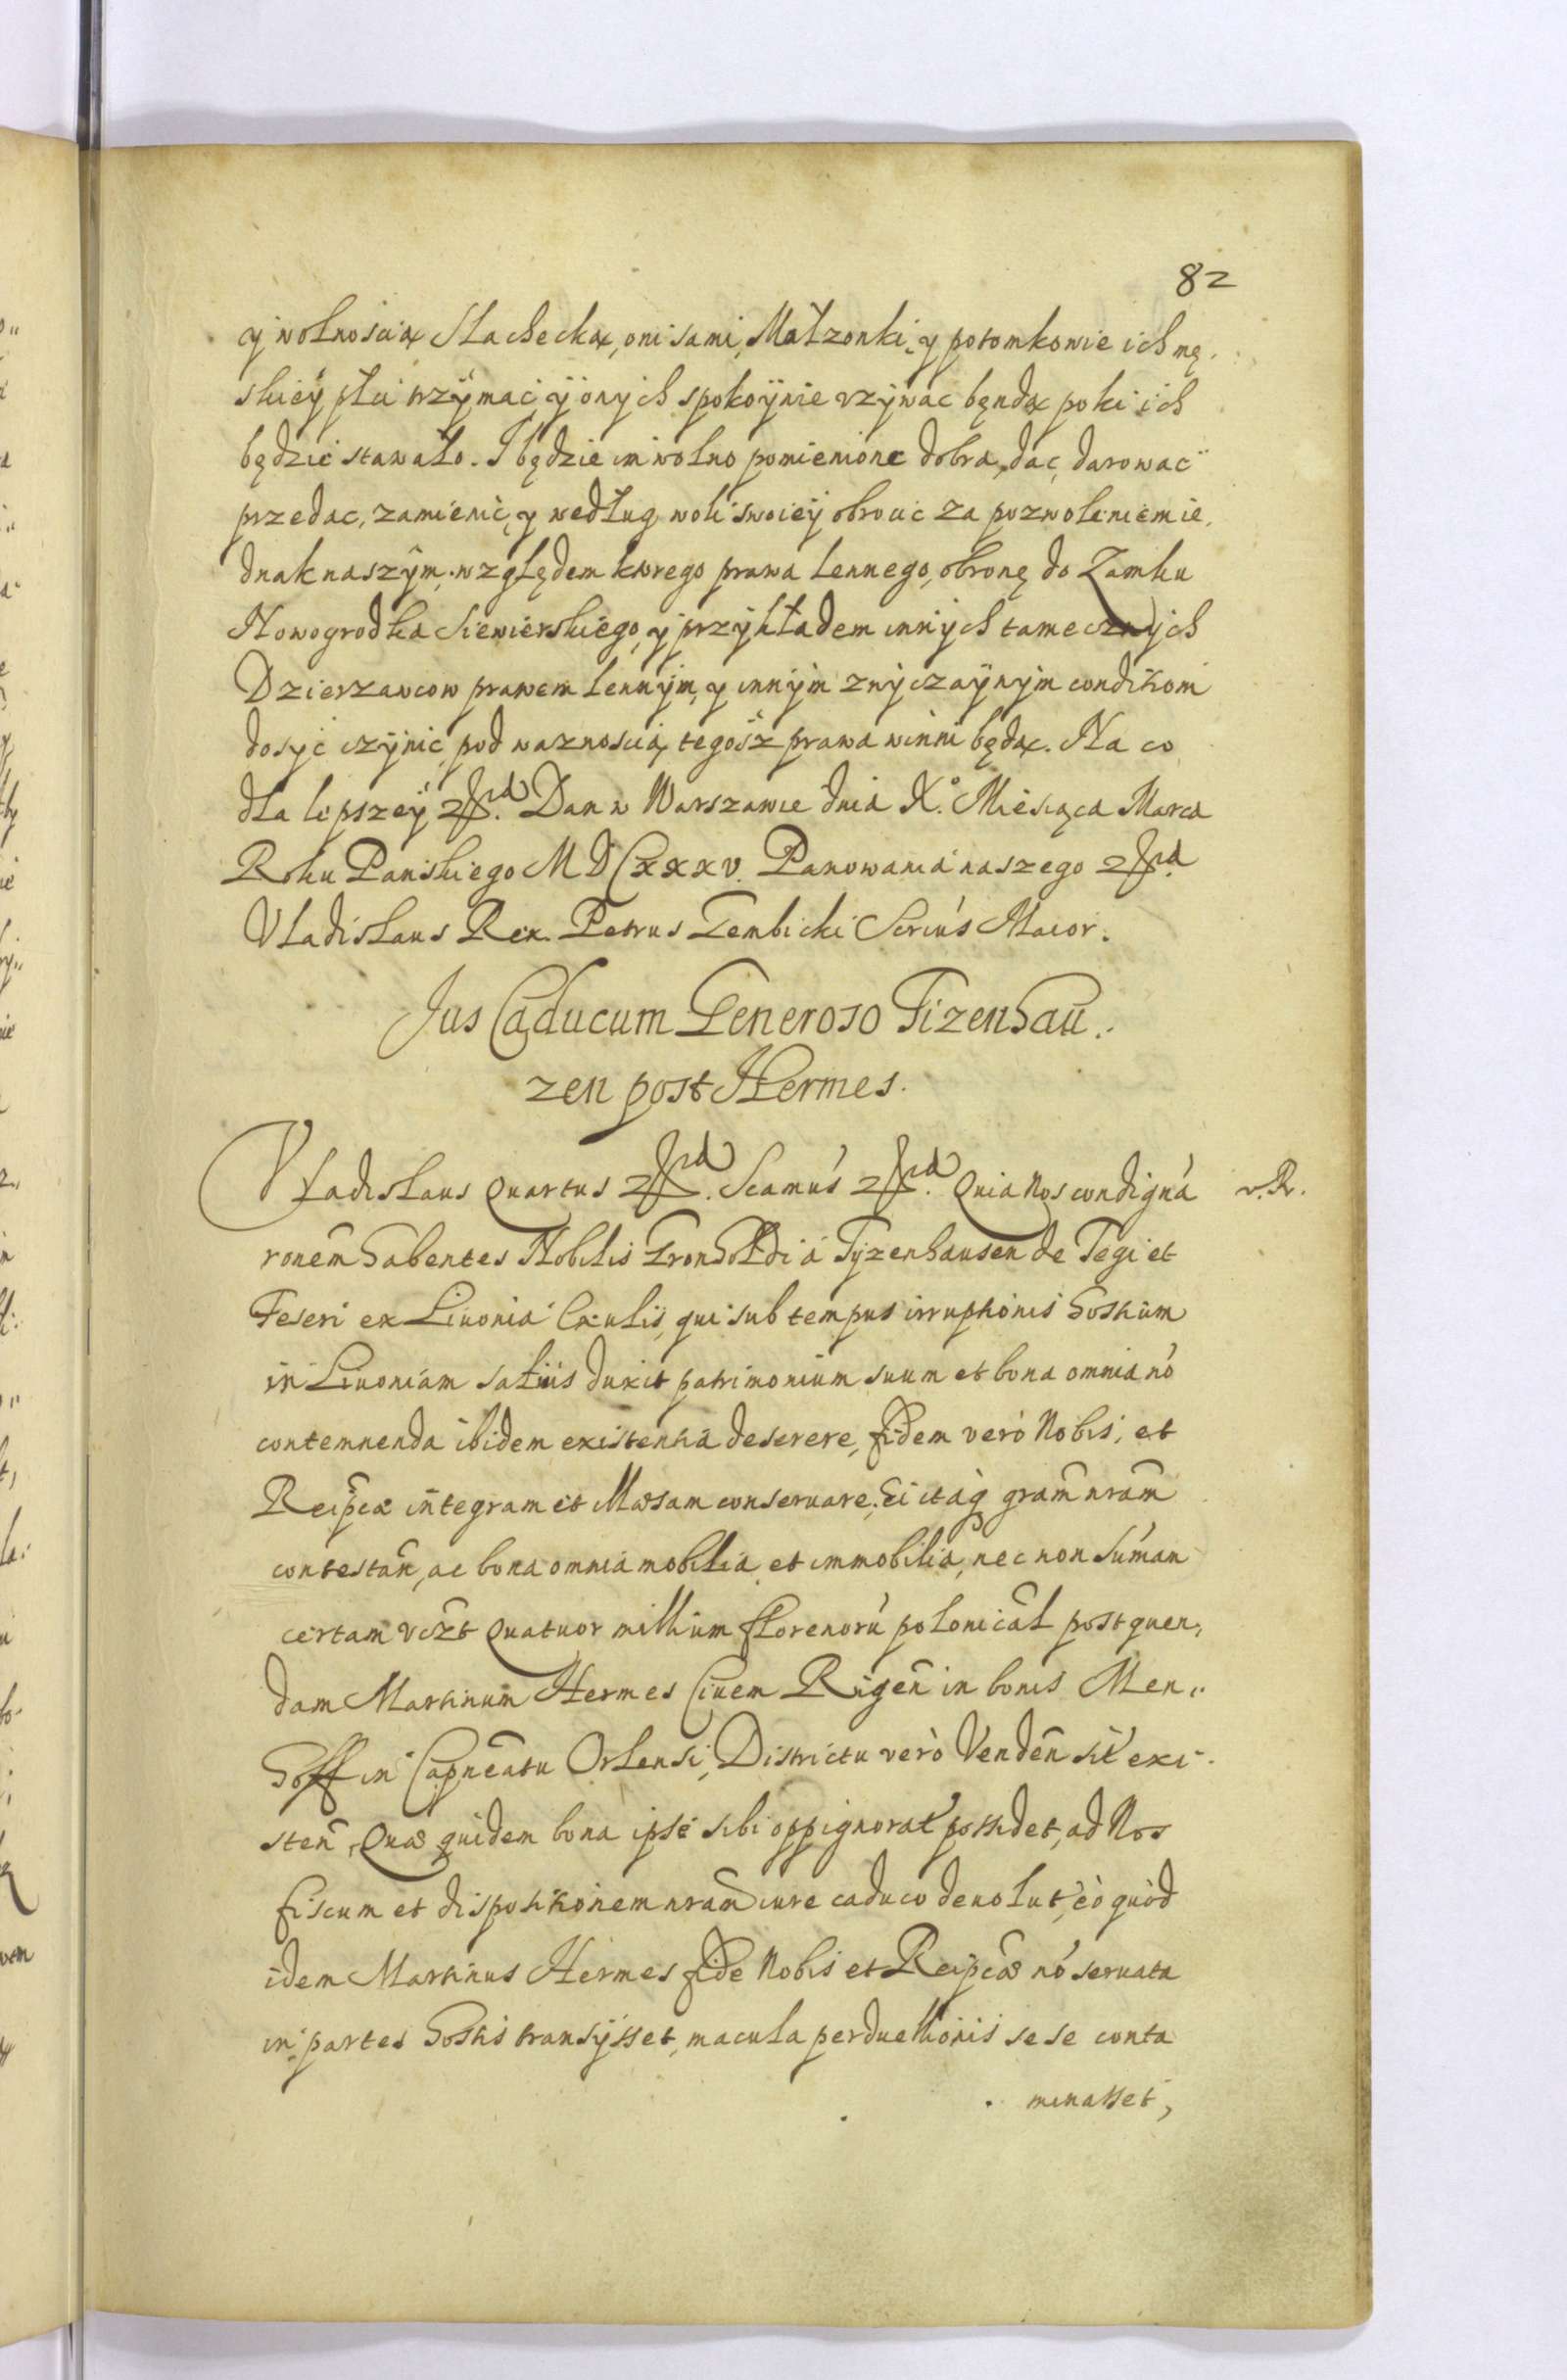 82
y wolnoscią Slachecką, oni sami, Małzonki, y potomkowie ich mę-
skiey płci trzymac, y onych spokoynie vzywac będą poki ich
będzie stawało. I będzie im wolno pomienione dobra, dac, darowac
przedac, zamienic, y według woli swoiey obrocic za pozwoleniem ie,
dnak naszym, względem ktorego prawa lennego, obronę do Zamku
Nowogrodka Siewierskiego, y przykładem innych tamecznych
Dzierzawcow prawem lennym, y innym zwyczaynym conditiom
dosyc czynic, pod waznoscią tegosz prawa winni będą. Na co
dla lepszey etc. Dan w Warszawie dnia X. Miesiąca Marca
Roku Panskiego MDCxxxv. Panowania naszego etc.
Vladislaus Rex. Petrus Gembicki Secrius Maior.
Jus Caducum Generoso Tizenhau.
zen post Hermes.
Vladislaus Quartus etc. Scamus etc. Quia Nos condigná v. R.
ronem habentes Nobilis Fronholdi á Tyzenhausen de Tegi et
Feseri ex Liuonia Exulis, qui sub tempus irruptionis hostium
in Liuoniam satius duxit patrimonium suum et bona omnia nó
contemnenda ibidem existentia deserere, fidem verò Nobis, et
Reipcæ integram et illæsam conseruare. Ei itaq gram nram
contestan, ac bona omnia mobilia et immobilia, nec non Sumam
certam vczt Quatuor millium florenorú polonical post quen,
dam Martinum Hermes Ciuem Rigen in bonis Men,,
hoff in Capneatu Orlensi, Districtu verò Venden sit exi-
sten, Quæ quidem bona ipse sibi oppignorat possidet, ad Nos
fiscum et dispositionem nram iure caduco deuolut, eò quòd
idem Martinus Hermes fide Nobis et Reipcæ nó seruata
in partes hostis transijsset, macula perduellionis sese conta
minasset,